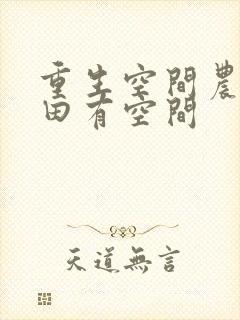 重生空間農
田有空間
天道無言